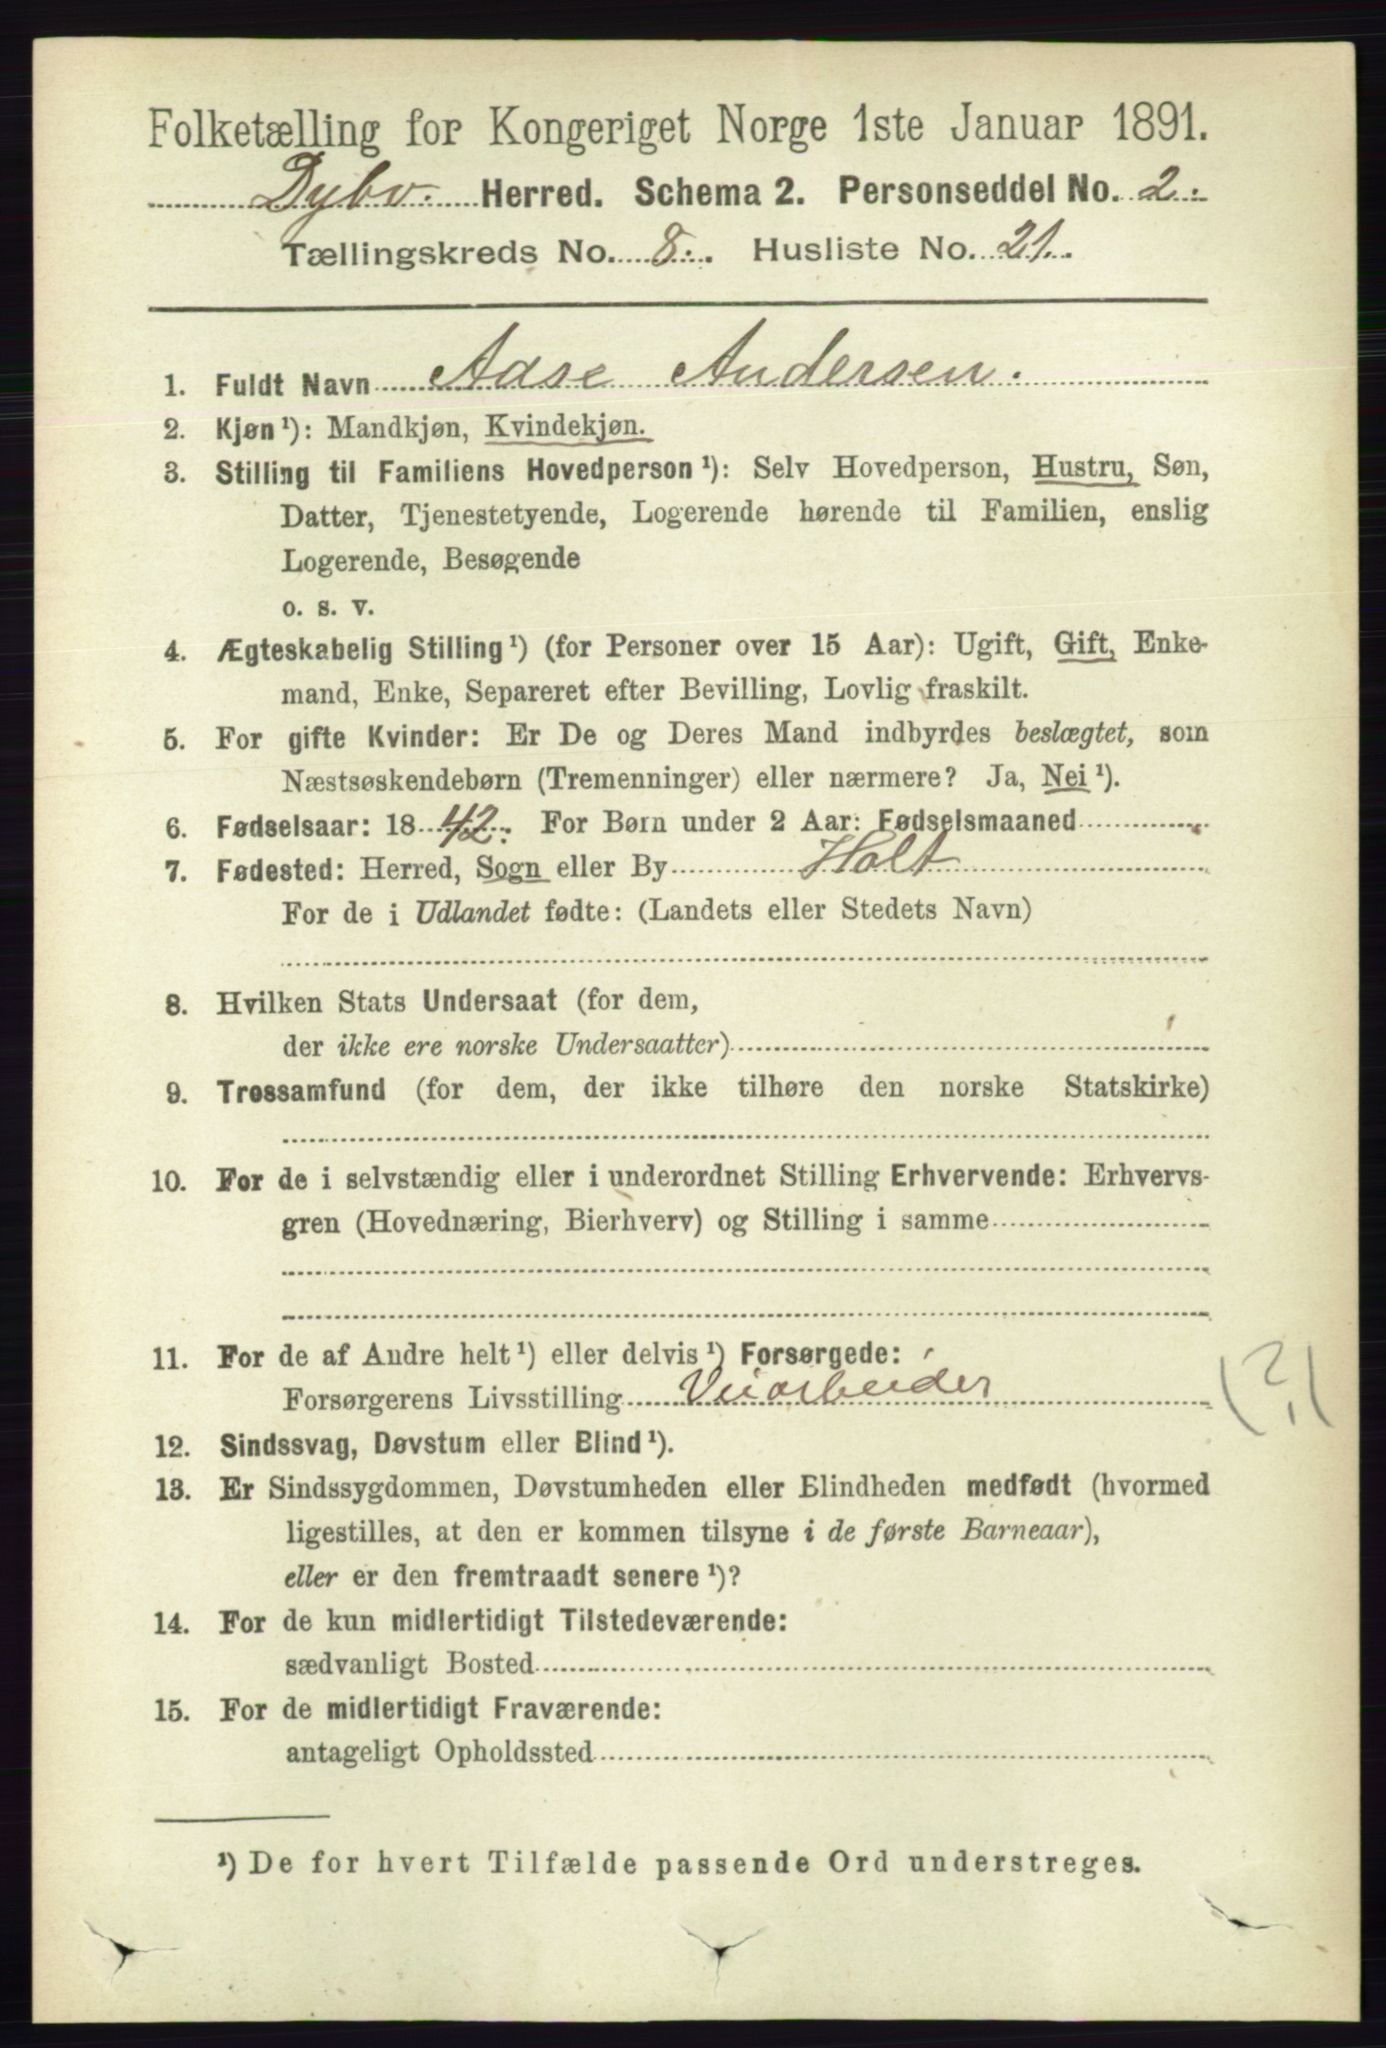 Folketælling for Kongeriget Norge 1ste Januar 1891.
Dybv. Herred. Schema 2. Personseddel No. 2.
Tællingskreds No. 8. Husliste No. 21.
1. Fuldt Navn Aase Andersen.
2. Kjøn¹): Mandkjøn, Kvindekjøn.
3. Stilling til Familiens Hovedperson¹): Selv Hovedperson, Hustru, Søn,
Datter, Tjenestetyende, Logerende hørende til Familien, enslig
Logerende, Besøgende
o. s. v.
4. Ægteskabelig Stilling¹) (for Personer over 15 Aar): Ugift, Gift, Enke-
mand, Enke, Separeret efter Bevilling, Lovlig fraskilt.
5. For gifte Kvinder: Er De og Deres Mand indbyrdes beslægtet, som
Næstsøskendebørn (Tremenninger) eller nærmere? Ja, Nei¹).
6. Fødselsaar: 1842. For Børn under 2 Aar: Fødselsmaaned
7. Fødested: Herred, Sogn eller By Holt
For de i Udlandet fødte: (Landets eller Stedets Navn)
8. Hvilken Stats Undersaat (for dem,
der ikke ere norske Undersaatter)
9. Trossamfund (for dem, der ikke tilhøre den norske Statskirke)
10. For de i selvstændig eller i underordnet Stilling Erhvervende: Erhvervs-
gren (Hovednæring, Bierhverv) og Stilling i samme
11. For de af Andre helt¹) eller delvis¹) Forsørgede:
Forsørgerens Livsstilling Veiarbeider (?)
12. Sindssvag, Døvstum eller Blind¹).
13. Er Sindssygdommen, Døvstumheden eller Blindheden medfødt (hvormed
ligestilles, at den er kommen tilsyne i de første Barneaar),
eller er den fremtraadt senere¹)?
14. For de kun midlertidigt Tilstedeværende:
sædvanligt Bosted
15. For de midlertidigt Fraværende:
antageligt Opholdssted
¹) De for hvert Tilfælde passende Ord understreges.